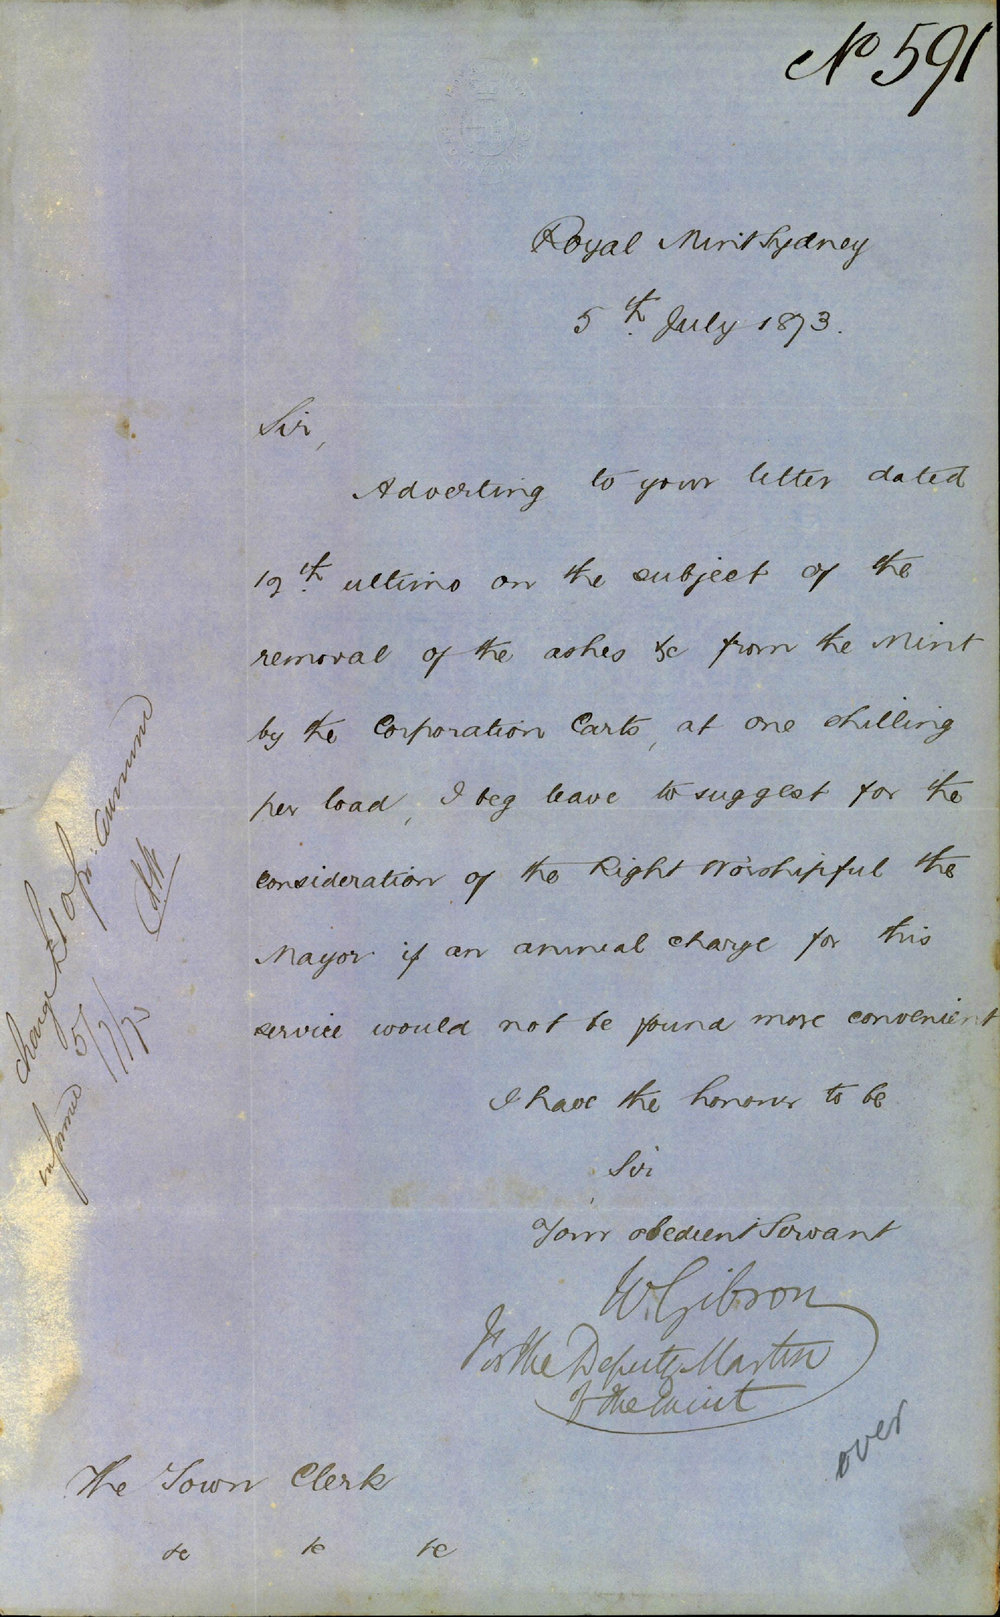 No 591
Royal Mint Sydney
5th. July 1873.
Sir,
Adverting to your letter dated
19th. ultimo on the subject of the
removal of the ashes &c from the Mint
by the Corporation Carts, at one shilling
per load, I beg leave to suggest for the
consideration of the Right Worshipful the
Mayor if an annual charge for this
service would not be found more convenient
I have the honour to be
Sir
Your obedient Servant
W. Gibson
For the Deputy Master
of the Mint
over
The Town Clerk
&c &c &c
charge pr. annum
inform 5/7/73